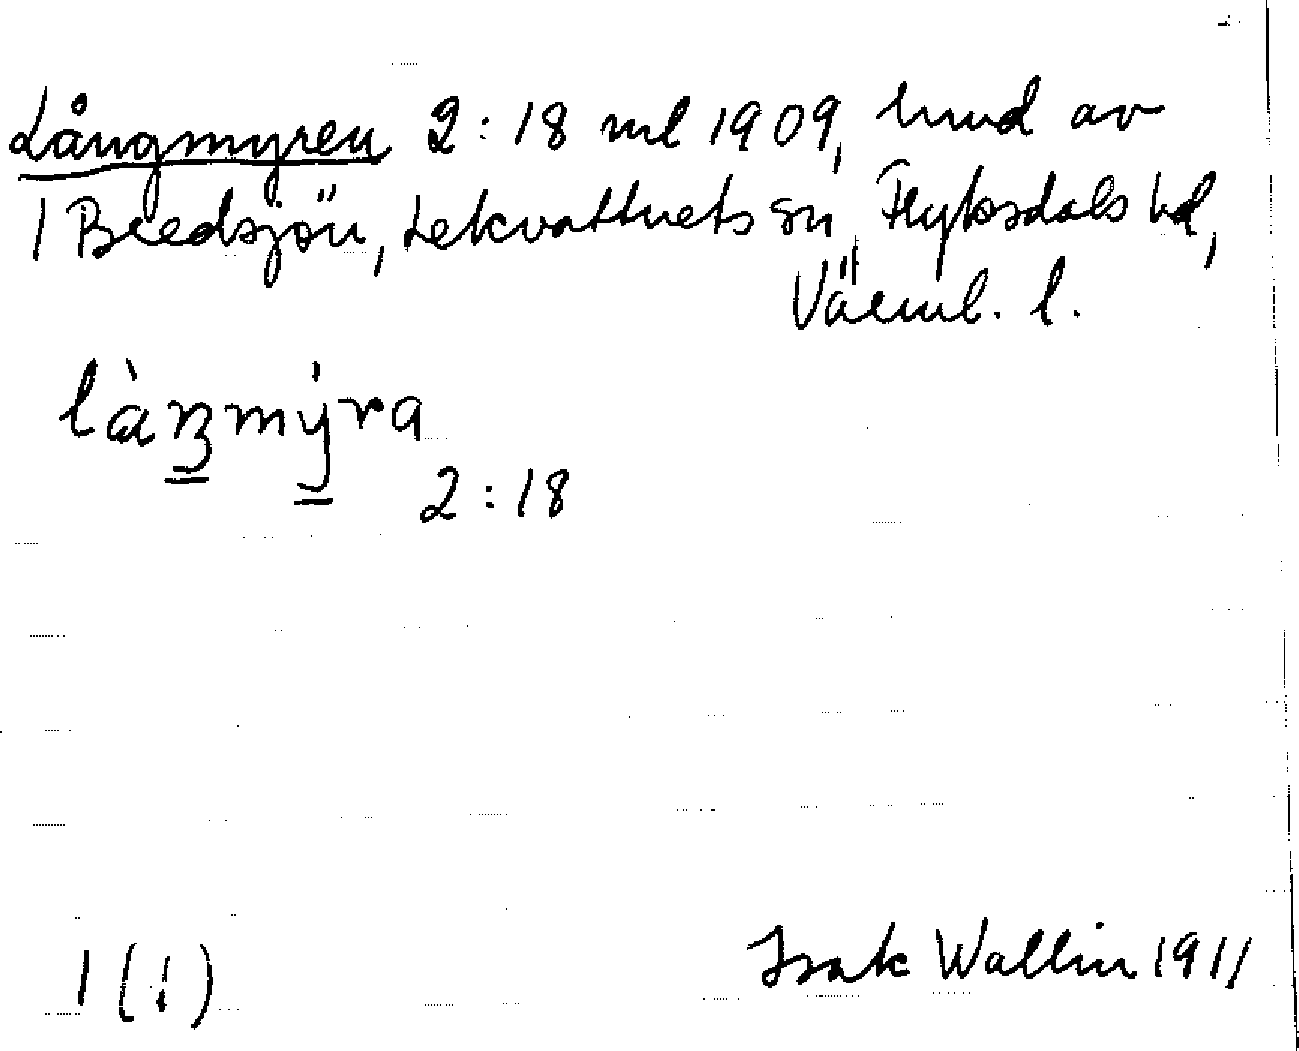 Långmyren 2:18 ml 1909, hmd av
1 Bredsjön, Lekvattnets sn, Fryksdals hd,
Värml. l.
làŋmýra
2:18
1 (1)
Isak Wallin 1911